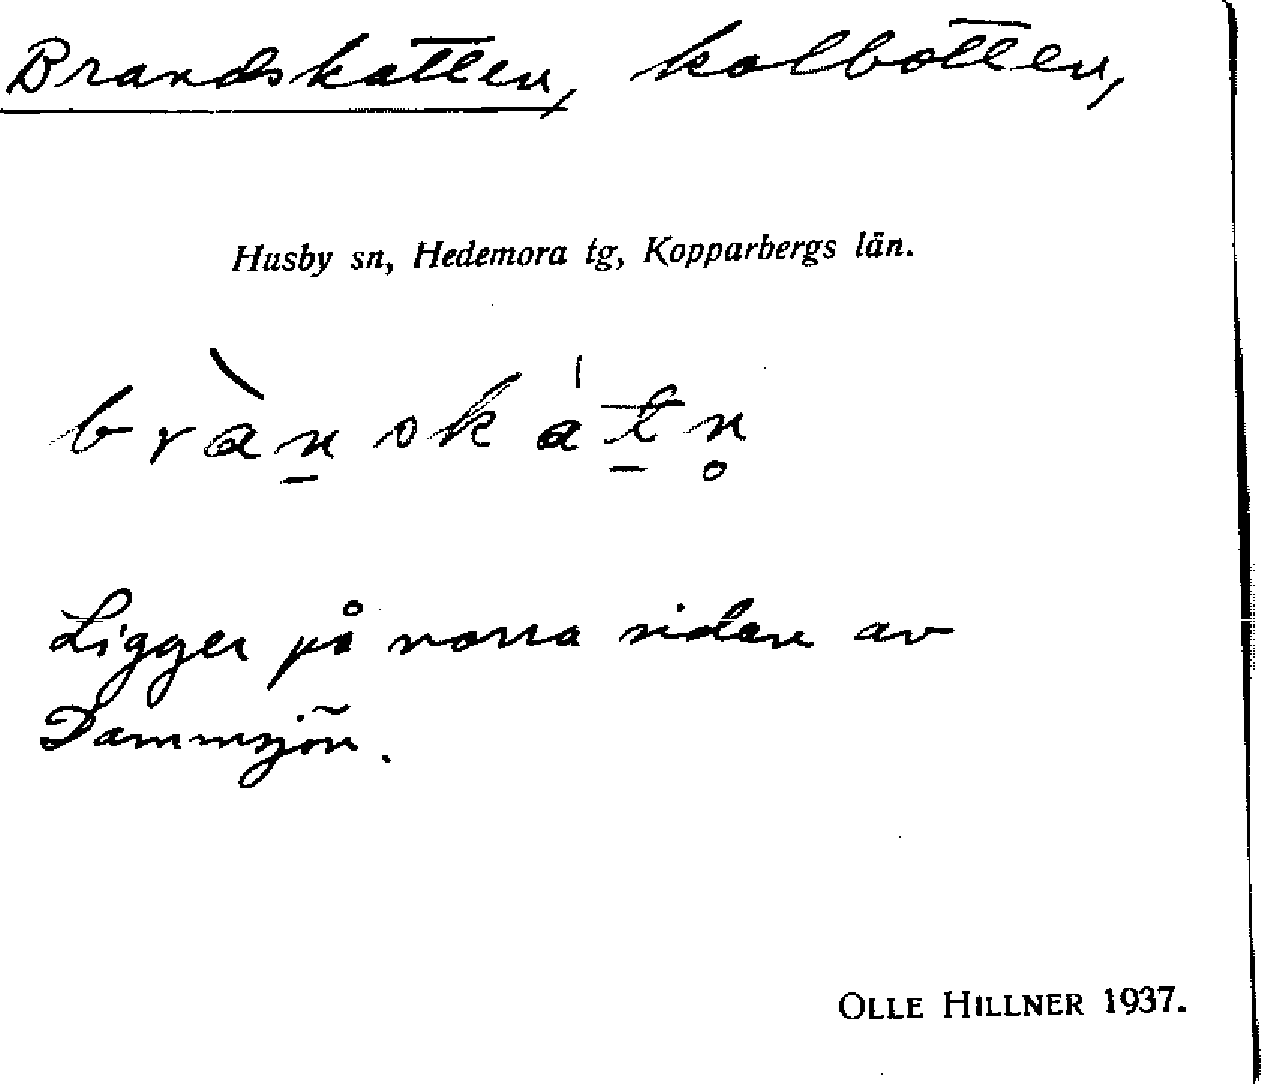 Brandskatten, kolbotten,
Husby sn, Hedemora tg, Kopparbergs län.
bràn̠skát̠n̥
Ligger på norra sidan av
Dammsjön.
OLLE HILLNER 1937.